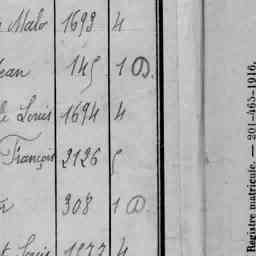 Malo 1693 4
Jean 145 1 D.
Louis 1694 4
François 2126 5
308 1 D.
Louis 4
Registre matricule. — 201-465-1916.